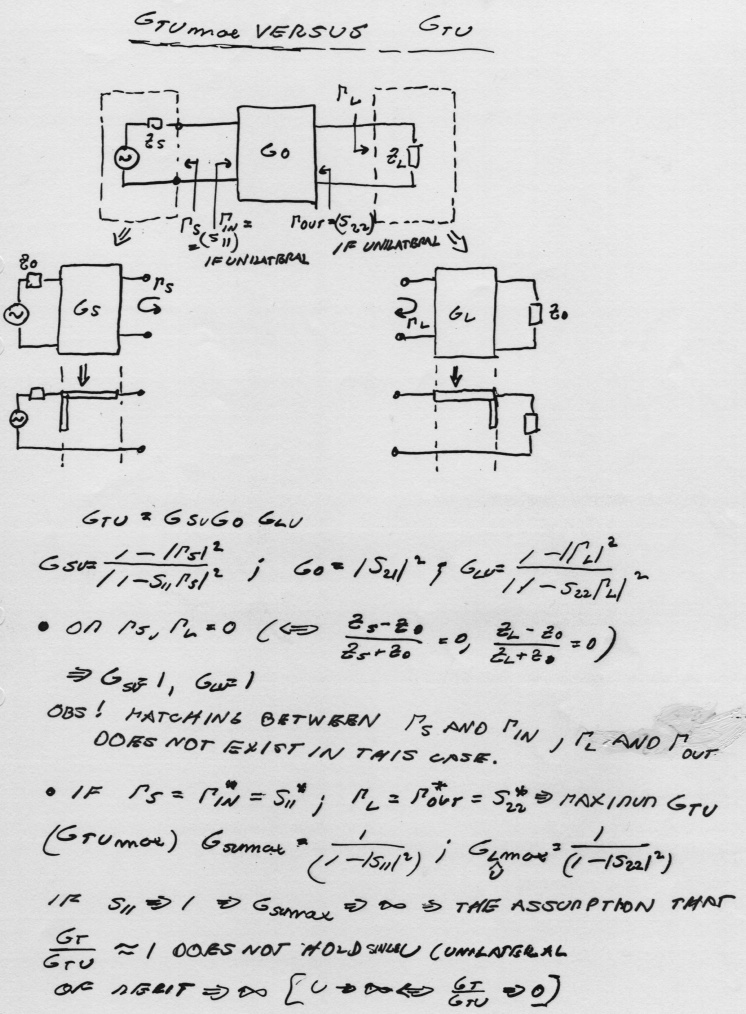 GTUmax VERSUS GTU
ΓL
ZS
GO
ZL
ΓS ΓIN = ΓOUT=(S22)
=(S11) IF UNILATERAL
IF UNILATERAL
Z0
GS
ΓS
GL
ΓL
Z0
GTU = GSU GO GLU
GSU = 1-|ΓS|² / |1-S11ΓS|² ; GO = |S21|² ; GLU = 1-|ΓL|² / |1-S22ΓL|²
• OM ΓS, ΓL = 0 (<=> ZS-Z0 / ZS+Z0 = 0, ZL-Z0 / ZL+Z0 = 0)
⇒ GSU=1, GLU=1
OBS! MATCHING BETWEEN ΓS AND ΓIN, ΓL AND ΓOUT
DOES NOT EXIST IN THIS CASE.
• IF ΓS = ΓIN* = S11* ; ΓL = ΓOUT* = S22* ⇒ MAXIMUM GTU
(GTUmax) GSUmax = 1 / (1-|S11|²) ; GLUmax = 1 / (1-|S22|²)
IF S11 ⇒ 1 ⇒ GSUmax ⇒ ∞ ⇒ THE ASSUMPTION THAT
GT / GTU ≈ 1 DOES NOT HOLD SINCE U (UNILATERAL
OF MERIT ⇒ ∞ [U → ∞ <=> GT / GTU ⇒ 0]